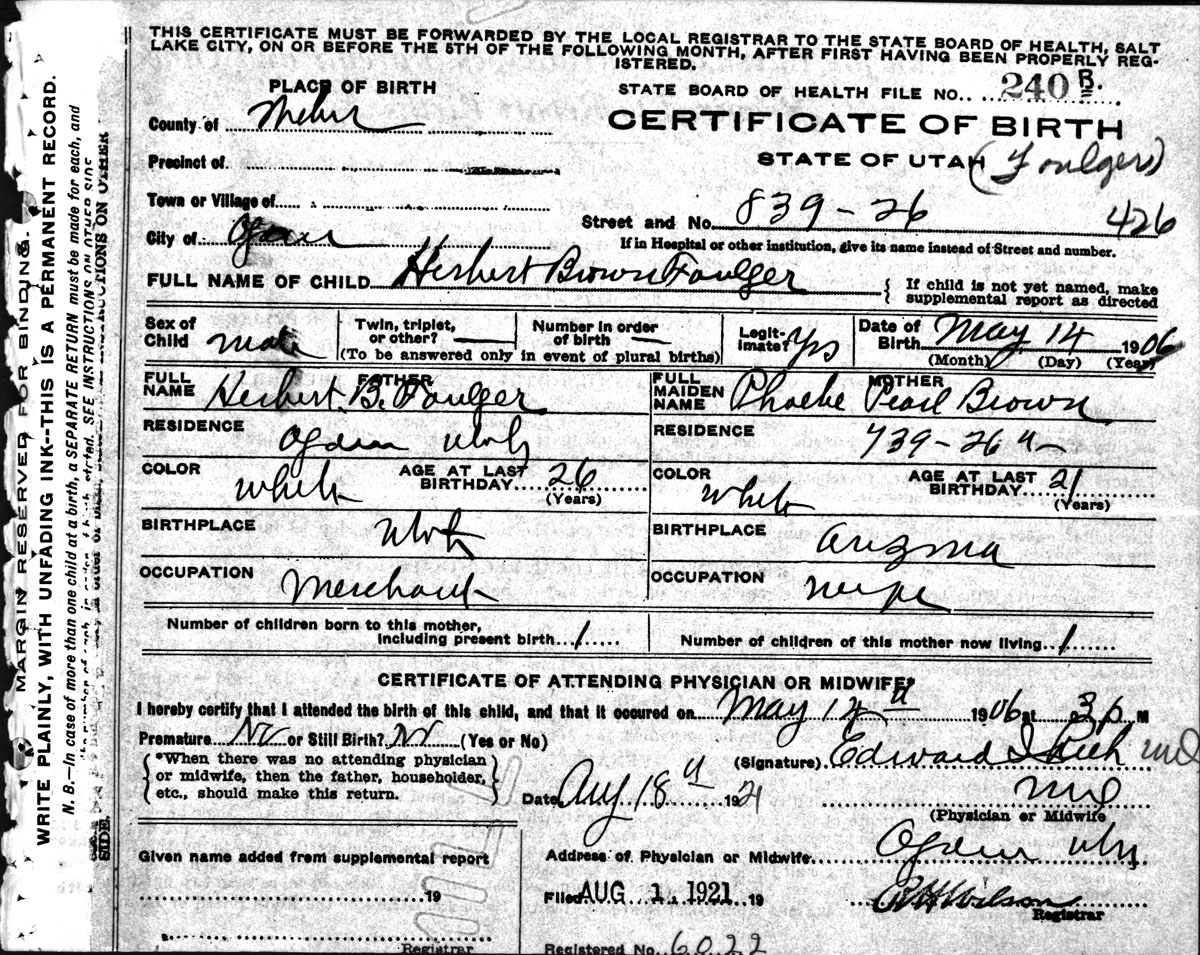 THIS CERTIFICATE MUST BE FORWARDED BY THE LOCAL REGISTRAR TO THE STATE BOARD OF HEALTH, SALT
LAKE CITY, ON OR BEFORE THE 5TH OF THE FOLLOWING MONTH, AFTER FIRST HAVING BEEN PROPERLY REG-
ISTERED.
PLACE OF BIRTH
STATE BOARD OF HEALTH FILE NO. 240 B.
County of Weber
CERTIFICATE OF BIRTH
Precinct of
STATE OF UTAH (Foulger)
Town or Village of
Street and No. 839-26 426
City of Ogden
If in Hospital or other institution, give its name instead of Street and number.
FULL NAME OF CHILD Herbert Brown Foulger
{ If child is not yet named, make
supplemental report as directed
Sex of Child male
Twin, triplet, or other? —
Number in order of birth —
(To be answered only in event of plural births)
Legit-imate? Yes
Date of Birth May 14 1906
(Month) (Day) (Year)
FATHER
FULL NAME Herbert B. Foulger
RESIDENCE Ogden Utah
COLOR White AGE AT LAST BIRTHDAY 26
(Years)
BIRTHPLACE Utah
OCCUPATION Merchant
MOTHER
FULL MAIDEN NAME Phoebe Pearl Brown
RESIDENCE 739-26th
COLOR White AGE AT LAST BIRTHDAY 21
(Years)
BIRTHPLACE Arizona
OCCUPATION
Number of children born to this mother,
including present birth 1
Number of children of this mother now living 1
CERTIFICATE OF ATTENDING PHYSICIAN OR MIDWIFE*
I hereby certify that I attended the birth of this child, and that it occured on May 14th 1906 at 3 p. M
Premature No or Still Birth? No (Yes or No)
{ *When there was no attending physician
or midwife, then the father, householder,
etc., should make this return. }
(Signature) Edward I Rich MD
Date Aug 18th 1921
MD
(Physician or Midwife
Given name added from supplemental report
Address of Physician or Midwife Ogden Utah
19
Filed AUG 1. 1921 19
Wilson
Registrar
Registrar
Registered No. 6022
MARGIN RESERVED FOR BINDING.
WRITE PLAINLY, WITH UNFADING INK--THIS IS A PERMANENT RECORD.
N. B.—In case of more than one child at a birth, a SEPARATE RETURN must be made for each, and
SEE INSTRUCTIONS ON OTHER SIDE
SIDE.